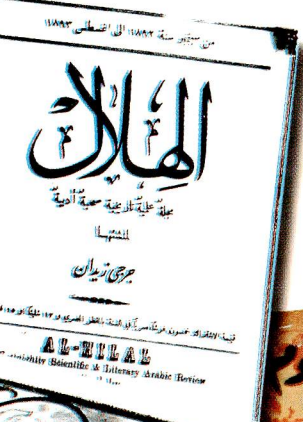 من سبتمبر سنة ١٨٩٢ الى اغسطس ١٨٩٣
الهلال
مجلة علمية تاريخية صحية أدبية
لمنشئها
جرجي زيدان
قيمة الاشتراك خمسون غرشا مصريا في السنة بالقطر المصري و
AL-HILAL
Monthly Scientific & Literary Arabic Review